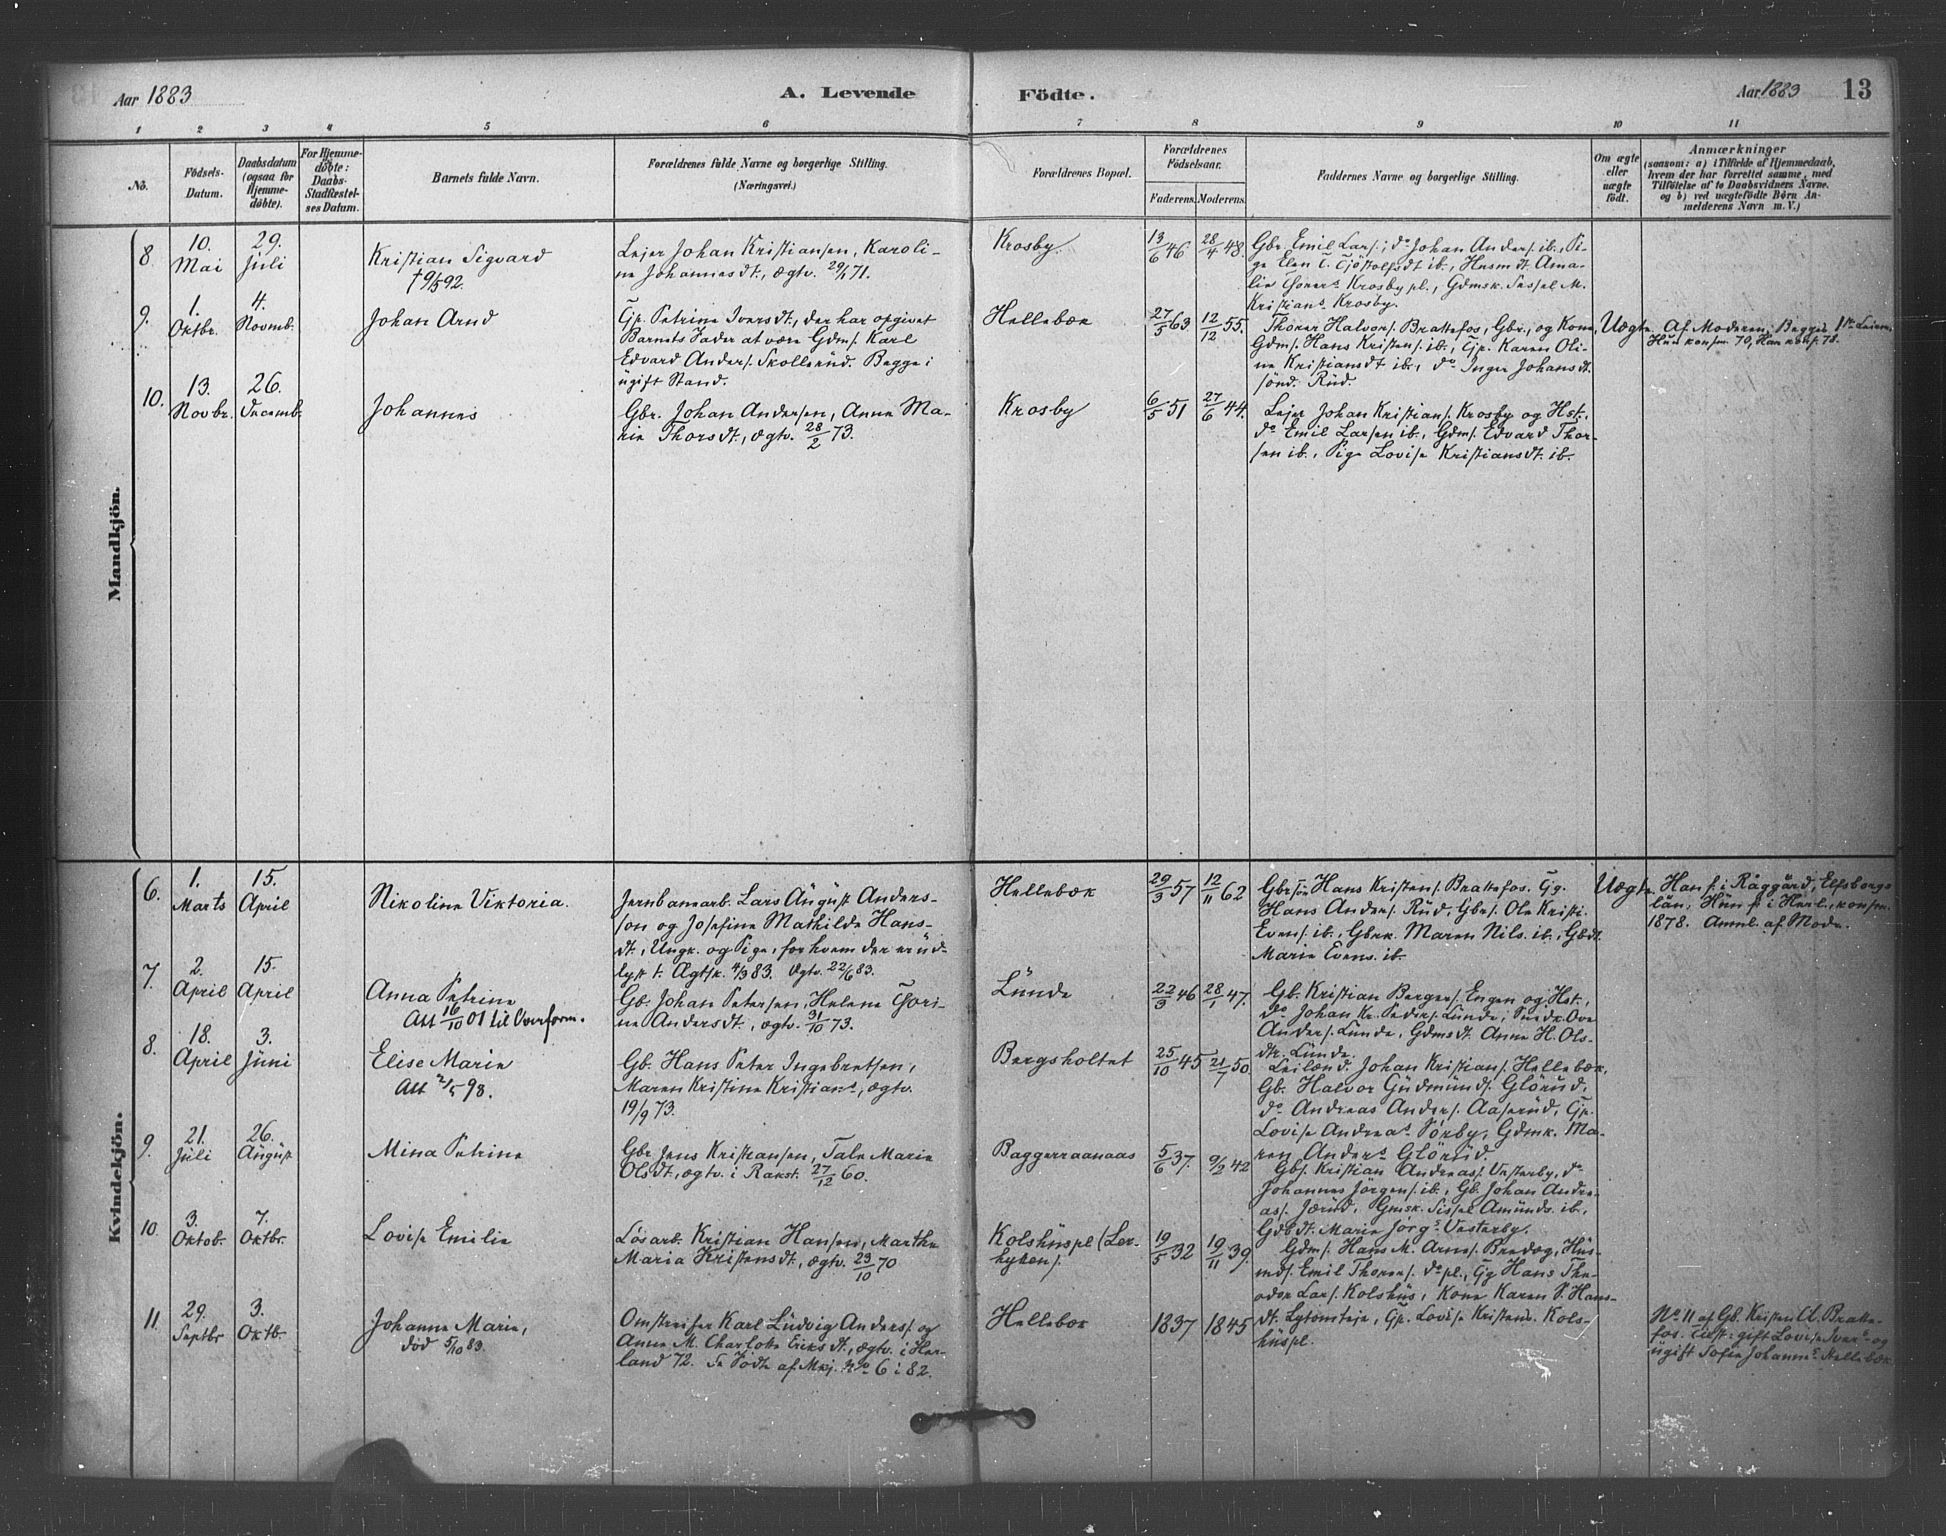 Aar 1883
A. Levende
Födte.
Aar 1883
13
1 2 3 4 5 6 7 8 9 10 11
No.
Födsels-
Datum.
Daabsdatum
(ogsaa for
Hjemme-
döbte).
For Hjemme-
döbte:
Daabs-
Stadfæstel-
ses Datum.
Barnets fulde Navn.
Forældrenes fulde Navne og borgerlige Stilling.
(Næringsvei.)
Forældrenes Bopæl.
Forældrenes
Födselsaar.
Faderens. Moderens.
Faddernes Navne og borgerlige Stilling.
Om ægte
eller
uægte
födt.
Anmærkninger
(saasom: a) i Tilfælde af Hjemmedaab,
hvem der har forrettet samme, med
Tilföielse af to Daabsvidners Navne.
og b) ved uægtefödte Börn An-
melderens Navn m. V.)
Mandkjön.
8. 10. Mai
29. Juli
Kristian Sigvard
† 9/5 92.
Lejer Johan Kristiansen, Karoli-
ne Johannesdt., ægtv. 29/1 71.
Krosby
13/6 46
28/4 48.
Gbr. Emil Lars.; do Johan Anders. ib., Pi-
ge Elen T. Tjöstolfsdt ib., Husmdt Ama-
lie Thores Krosbypl., Gdmsk. Sissel M.
Kristians. Krosby.
9. 1. Oktbr.
4. Novmb.
Johan Arnd
Gp. Petrine Iversdt., der har opgivet
Barnets Fader at være Gdms. Karl
Edvard Anders. Skollerud. Begge i
ugift Stand.
Hellebæk
27/5 63
12/12 55.
Thorer Halvors. Brattefos, Gbr., og Kone,
Gdms. Hans Kristens. ib., Gp. Karen Oli-
ne Kristiansdt ib., do Inger Johansdt.
sönd. Rud.
Uægte.
Af Moderen. Begges 1ste Leierm.
Hun konf. 70, Han konf. 78.
10. 13. Novbr.
26. Decemb.
Johannes
Gbr. Johan Andersen, Anne Ma-
rie Thorsdt., ægtv. 28/2 73.
Krosby
6/5 51
27/6 44.
Lejer Johan Kristians. Krosby og Hst.,
do Emil Larsen ib., Gdms. Edvard Thor-
sen ib., Pige Lovise Kristiansdt. ib.
Kvindekjön.
6. 1. Marts
15. April
Nikoline Viktoria.
Jernbanearb. Lars August Anders-
son og Josefine Mathilde Hans-
dt., Ungk. og Pige, for hvem der er ud-
lyst t. Ægtsk. 4/3 83. Ægtv. 22/6 83.
Hellebæk
29/3 57
12/11 62
Hans Kristens. Brattefos. Gg.
Hans Anders. Rud, Gbrs. Ole Kristi.
Evens. ib., Gbrk. Maren Nils. ib., Gbdt.
Marie Evens. ib.
Uægte.
Han f. i Råggärd, Elfsborgs
län, Hun f. i Herl., konfm.
1878. Anml. af Modr.
7. 2. April
15. April
Anna Petrine
Att 16/10 01 til Overform.
Gb. Johan Petersen, Helene Thori-
ne Andersdt., ægtv. 31/10 73.
Lunde
22/3 46
28/1 47.
Gb. Kristian Bergers. Engen og Hst.,
do Johan Kr. Peders. Lunde, Ove
Anders. Lunde, Gdmsdt. Anne H. Ols-
dtr. Lunde.
8. 18. April
3. Juni
Elise Marie
Att 2/5 98.
Gb. Hans Peter Ingebretsen,
Maren Kristine Kristians., ægtv.
19/9 73.
Bergsholtet
25/10 45
21/7 50
Leilænd. Johan Kristians. Hellebæk,
Gb. Halvor Gudmunds. Glörud,
do Andreas Anders. Aaserud, Gp.
Lovise Andreas. Pörby, Gdmk. Ma-
ren Anders. Glörud.
9. 21. Juli
26. August
Mina Petrine
Gbr. Jens Kristiansen, Tale Marie
Olsdt., ægtv. i Rakst. 27/12 60.
Baggerraanaas
5/6 37.
9/2 42
Gbs. Kristian Andreas. Vesterby, do
Johannes Jörgens. ib., Gb. Johan Andre-
as. Jærud, Gmsk. Sissel Amunds. ib.,
Gdbdt. Marie Jörgs. Vesterby.
10. 3. Oktob.
7. Oktbr.
Lovise Emilie
Lösarb. Kristian Hansen, Marthe
Maria Kristensdt., ægtv. 23/10 70
Kolshuspl (Ler-
hytten).
19/5 32
19/11 39.
Gdms. Hans M. Arnes. Bredeg, Hus-
mds. Emil Thores. do pl., Gg Hans The-
odor Lars. Kolshus, Kone Karen S. Hans-
dt. Lytomteje, Gp. Lovise Kristens. Kols-
huspl.
11. 29. Septbr
3. Oktb.
Johanne Marie,
död 5/10 83.
Omstreifer Karl Ludvig Anders. og
Anne M. Charlotte Eriksdt., ægtv. i Her-
land 72. Se Födte af Mkj. No 6 i 82.
Hellebæk
1837
1845
No 11 af Gb. Kristen A. Bratte-
fos. Tilst: gift Lovise Ivers. og
ugift Sofie Johannes. Hellebæk